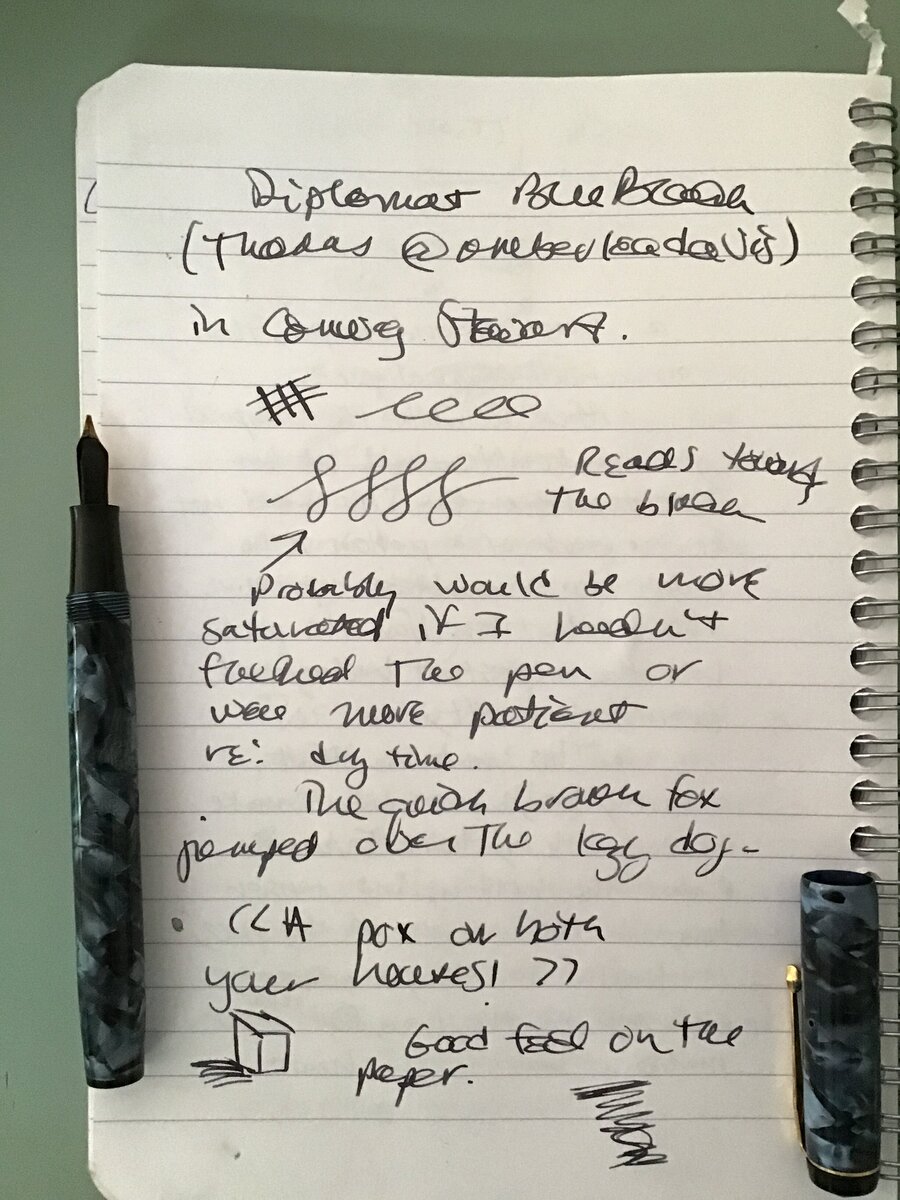 Diplomat Blue Black
(Thanks @onebeyloadaVis)
in Conway Stewart.
Reads toward
the black
Probably would be more
saturated if I hadn't
flushed The pen or
were more patient
re: dry time.
The quick brown fox
jumped over The lazy dog-
· << A pox on both
your houses! >>
Good feel on the
paper.